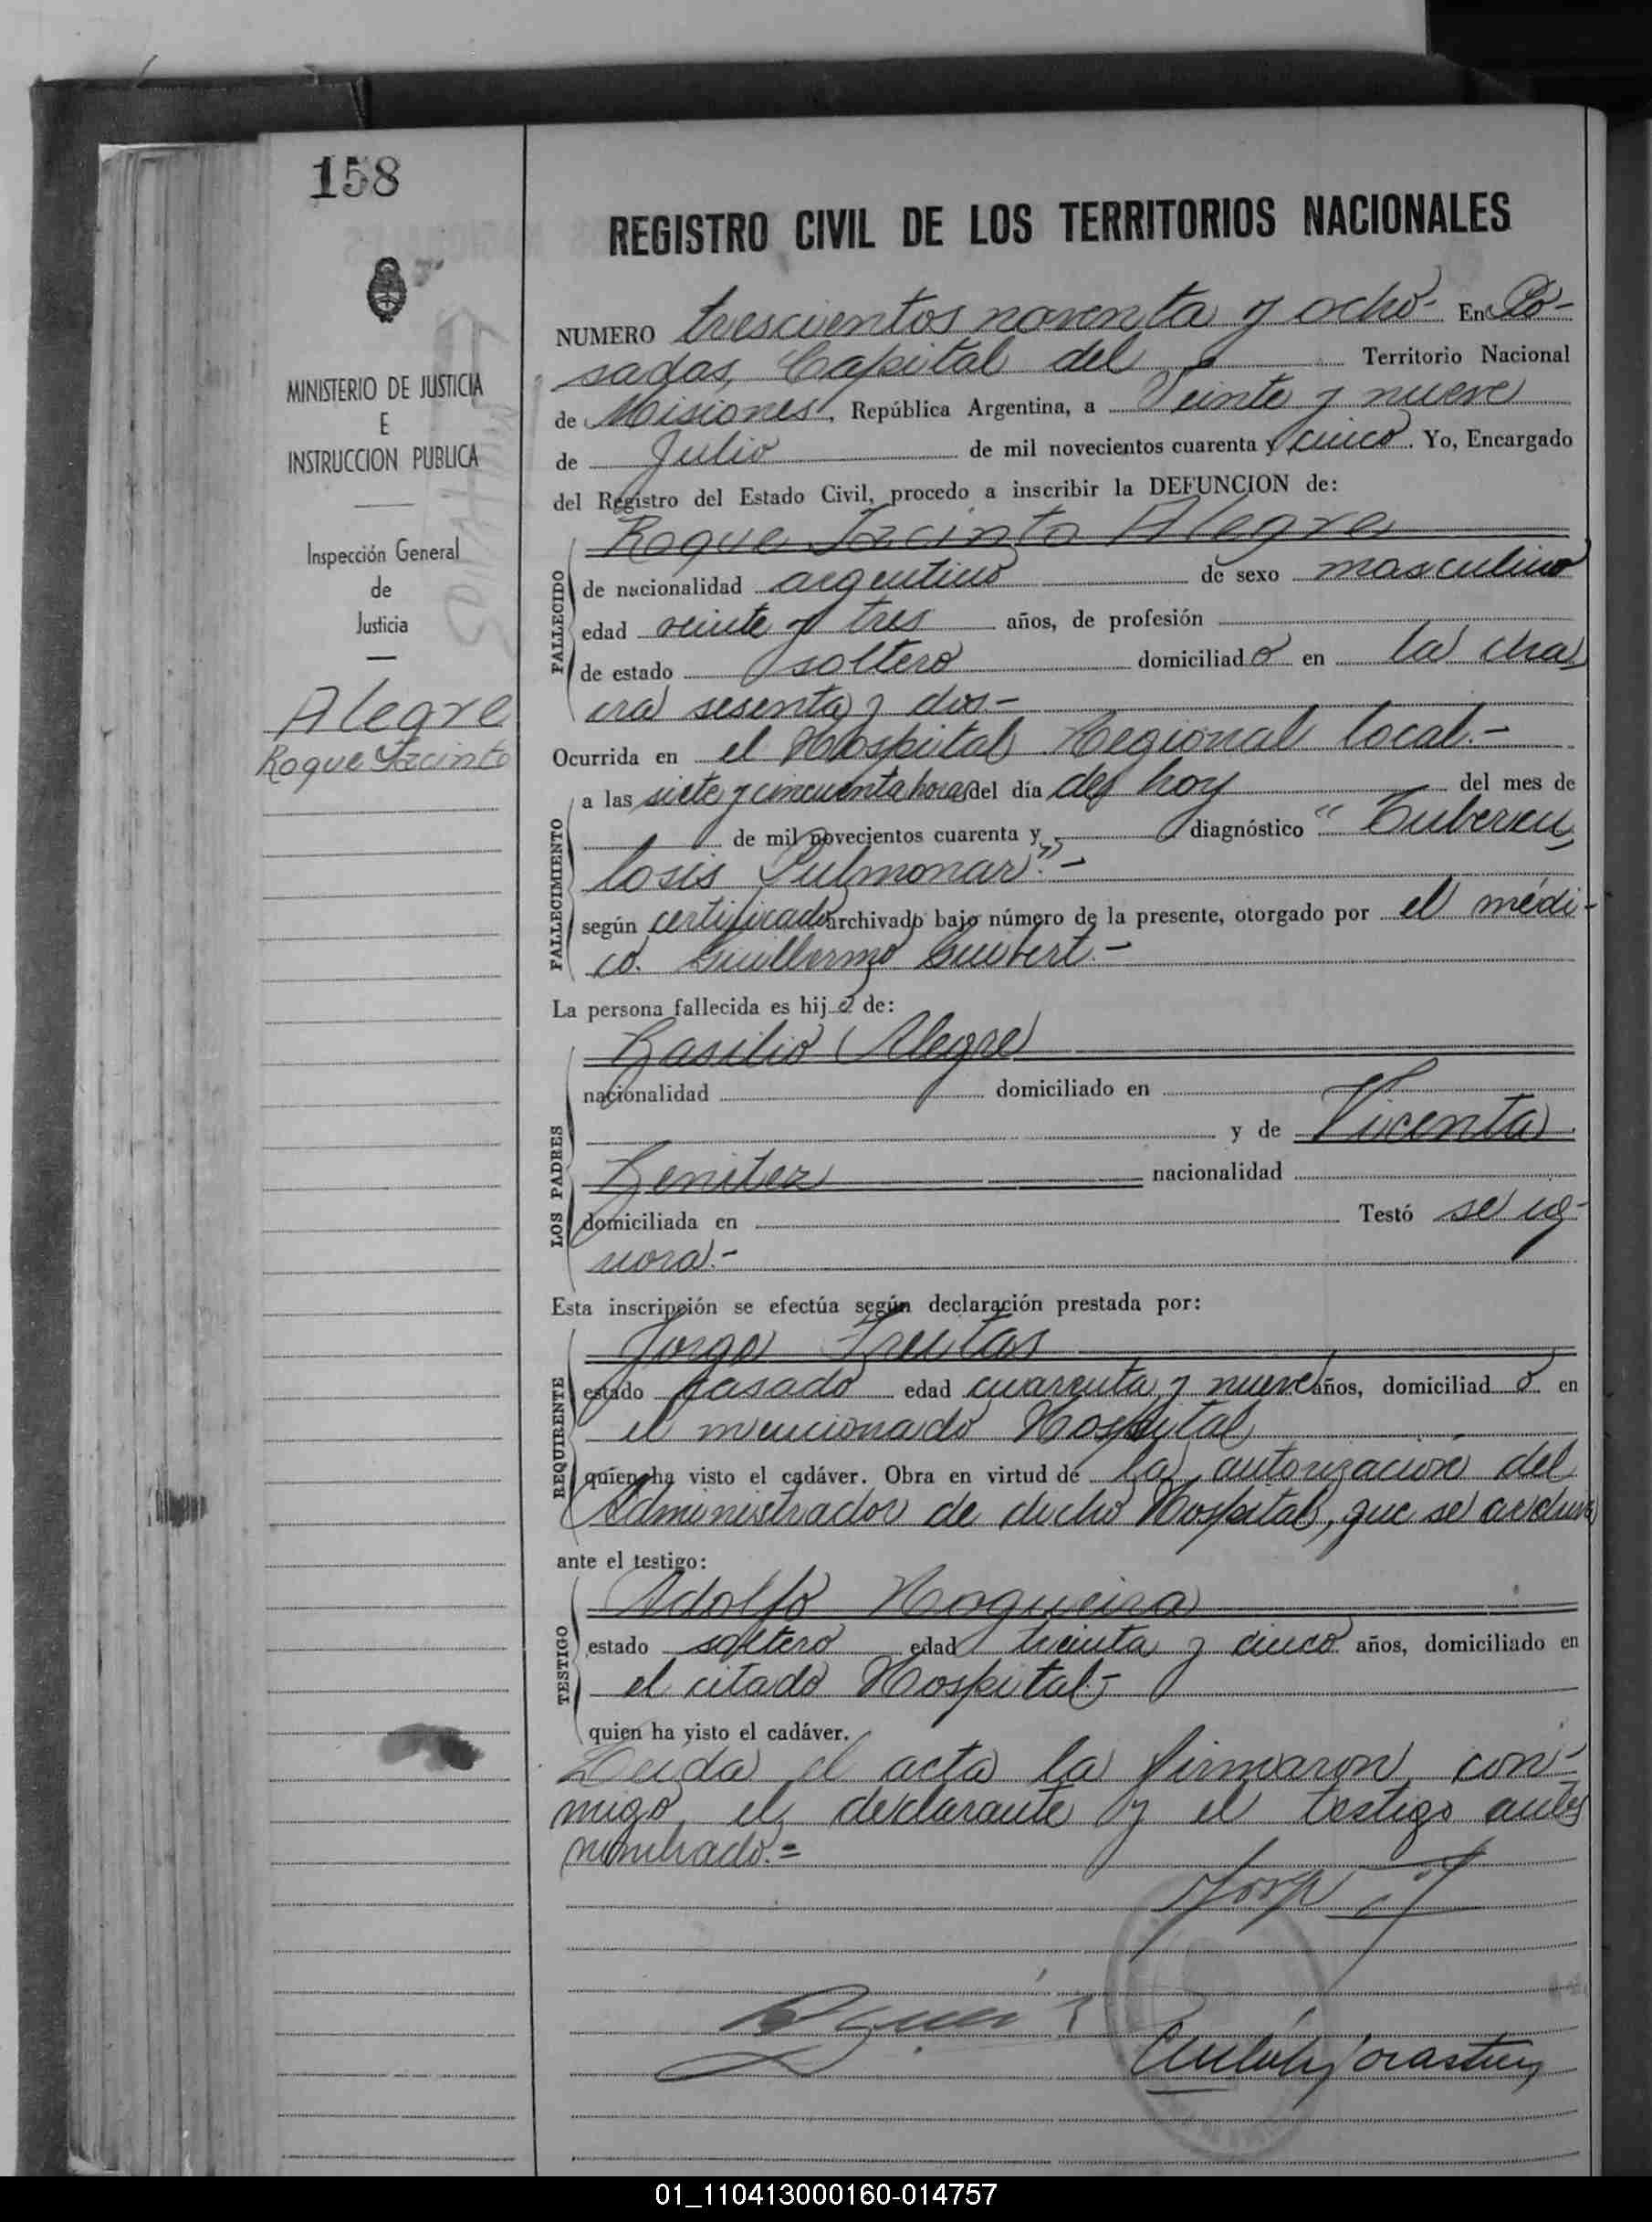 158
REGISTRO CIVIL DE LOS TERRITORIOS NACIONALES
MINISTERIO DE JUSTICIA
E
INSTRUCCION PUBLICA
Inspección General
de
Justicia
Alegre
Roque Jacinto
NUMERO trescientos noventa y ocho- En Po-
sadas, Capital del Territorio Nacional
de Misiones, República Argentina, a Veinte y nueve
de Julio de mil novecientos cuarenta y cinco. Yo, Encargado
del Registro del Estado Civil, procedo a inscribir la DEFUNCION de:
Roque Jacinto Alegre
FALLECIDO
de nacionalidad argentino de sexo masculino
edad veinte y tres años, de profesión
de estado soltero domiciliado en la cha
cra sesenta y dos-
Ocurrida en el Hospital Regional local.-
FALLECIMIENTO
a las siete y cincuenta horas del día de hoy del mes de
de mil novecientos cuarenta y diagnóstico "Tubercu
losis Pulmonar".-
según certificado archivado bajo número de la presente, otorgado por el médi-
co. Guillermo .-
La persona fallecida es hijo de:
LOS PADRES
Basilio Alegre
nacionalidad domiciliado en
y de Vicenta
Benitez nacionalidad
domiciliada en Testó se ig-
nora.-
Esta inscripción se efectúa según declaración prestada por:
REQUIRENTE
Jorge Freitas
estado casado edad cuarenta y nueve años, domiciliado en
el mencionado Hospital
quien ha visto el cadáver. Obra en virtud de la autorización del
Administrador de dicho Hospital, que se archiva
ante el testigo:
TESTIGO
Adolfo Nogueira
estado soltero edad treinta y cinco años, domiciliado en
el citado Hospital-
quien ha visto el cadáver.
Leida el acta la firmaron con-
migo, el declarante y el testigo antes
nombrado.=
01_110413000160-014757